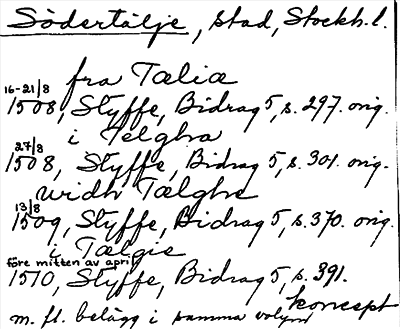 Södertälje, stad, Stockh. l.
fra Tæliæ
16-21/8
1508, Styffe, Bidrag 5, s. 297. orig.
i Telghæ
27/8
1508, Styffe, Bidrag 5, s. 301. orig.
widh Tælghe
13/8
1509, Styffe, Bidrag 5, s. 370. orig.
i Tælgie
före mitten av april
1510, Styffe, Bidrag 5, s. 391.
koncept
m. fl. belägg i samma volym